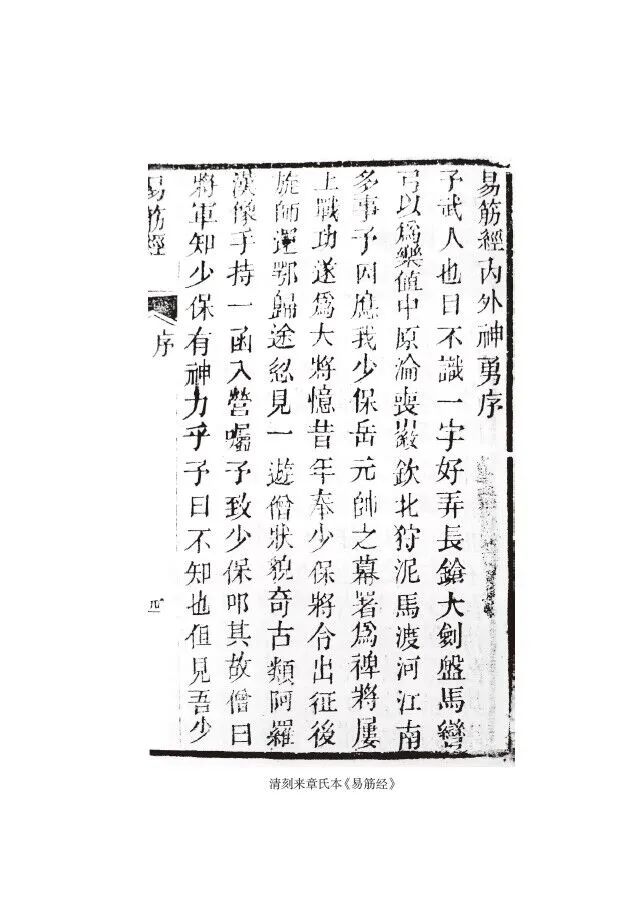 易筋經內外神勇序
予武人也目不識一字好弄長鎗大劍盤馬彎
弓以爲樂值中原淪喪徽欽北狩泥馬渡河江南
多事予因應我少保岳元帥之幕署爲裨將屢
上戰功遂爲大將憶昔年奉少保將令出征後
旋師還鄂歸途忽見一遊僧狀貌奇古類阿羅
漢像手持一函入營囑予致少保叩其故僧曰
將軍知少保有神力乎予曰不知也但見吾少
易筋經 序
清刻来章氏本《易筋经》